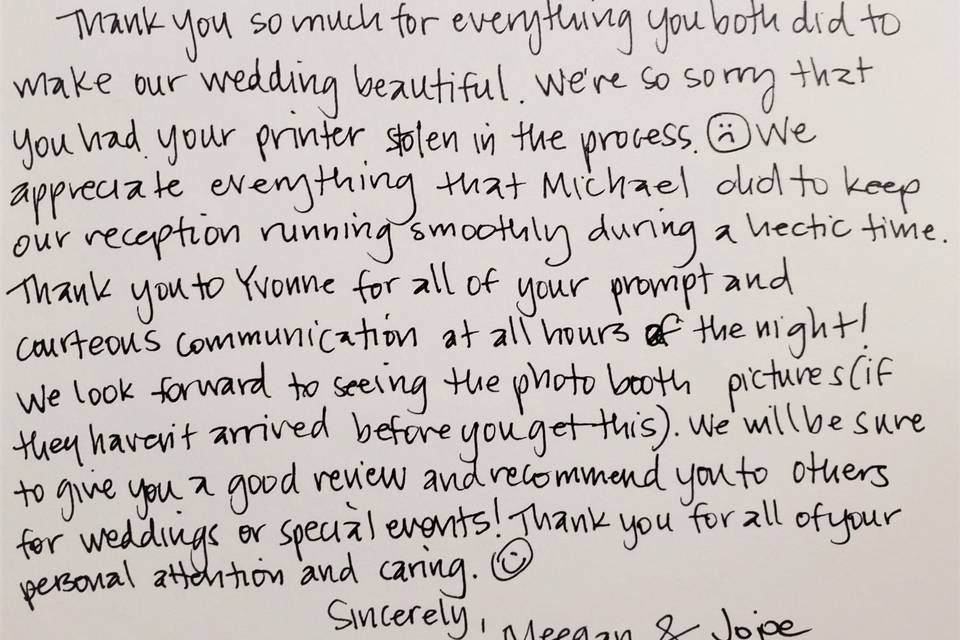 Thank you so much for everything you both did to
make our wedding beautiful. We're so sorry that
you had your printer stolen in the process. ☹ We
appreciate everything that Michael did to keep
our reception running smoothly during a hectic time.
Thank you to Yvonne for all of your prompt and
courteous communication at all hours of the night!
We look forward to seeing the photo booth pictures (if
they haven't arrived before you get this). We will be sure
to give you a good review and recommend you to others
for weddings or special events! Thank you for all of your
personal attention and caring. ☺
Sincerely, Meegan & Jojoe